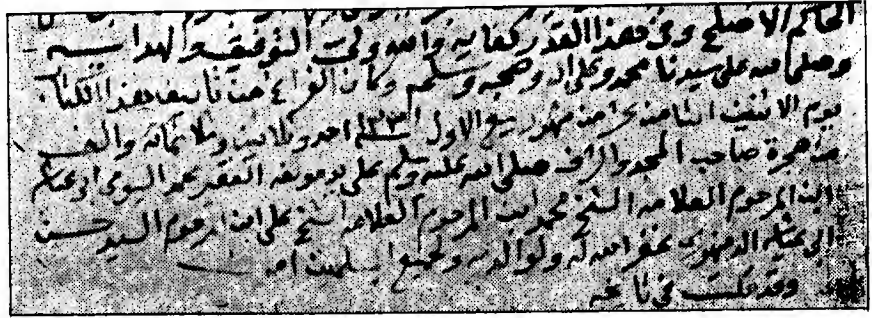 الحاكم الاصلح وفى هذا القدر كفاية والله ولى التوفيق والهداية
وصلى الله على سيدنا محمد وعلى اله وصحبه وسلم وكان الفراغ من تأليف هذا الكتاب
يوم الاثنين الثامن عشر من شهر ربيع الاول ١٣٣١ احد وثلاثين وثلاثمائة والف
من هجرة صاحب المجد والشرف صلى الله عليه وسلم على يد مؤلفه الفقير عبد
ابن المرحوم العلامه الشيخ محمد ابن المرحوم العلامه الشيخ على ابن المرحوم السيد حسن
ابى غفر الله له ولوالديه ولجميع المسلمين امين
وقد قلت فى تاريخه